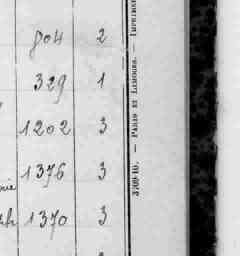 804 2
329 1
1202 3
1376 3
1370 3
3709-10. — PARIS ET LIMOGES. — IMPRIMER